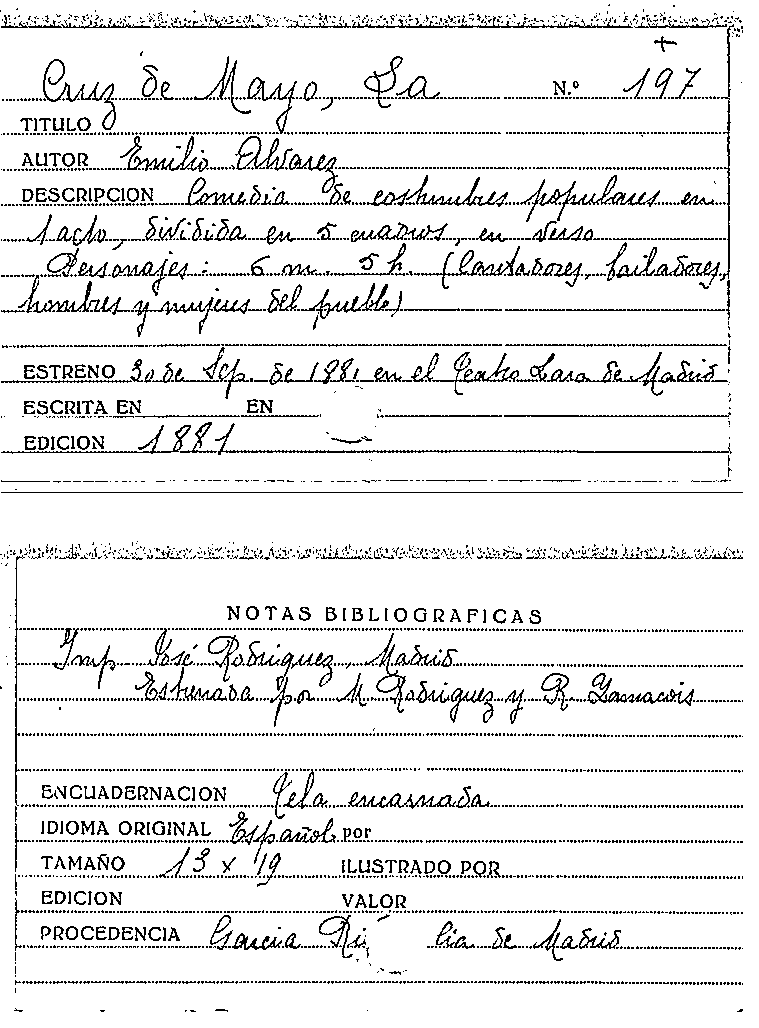 +
Cruz de Mayo, La N.º 197
TITULO
AUTOR Emilio Alvarez
DESCRIPCION Comedia de costumbres populares en
1 acto, dividida en 5 cuadros, en verso
Personajes: 6 m. 5 h. (Cantadores, bailadores,
hombres y mujeres del pueblo)
ESTRENO 30 de Sep. de 1881 en el Teatro Lara de Madrid
ESCRITA EN EN
EDICION 1881
NOTAS BIBLIOGRAFICAS
Imp José Rodriguez, Madrid
Estrenada por M. Rodriguez y R.
ENCUADERNACION Tela encarnada
IDIOMA ORIGINAL Español por
TAMAÑO 13 x 19 ILUSTRADO POR
EDICION VALOR
PROCEDENCIA Garcia de Madrid